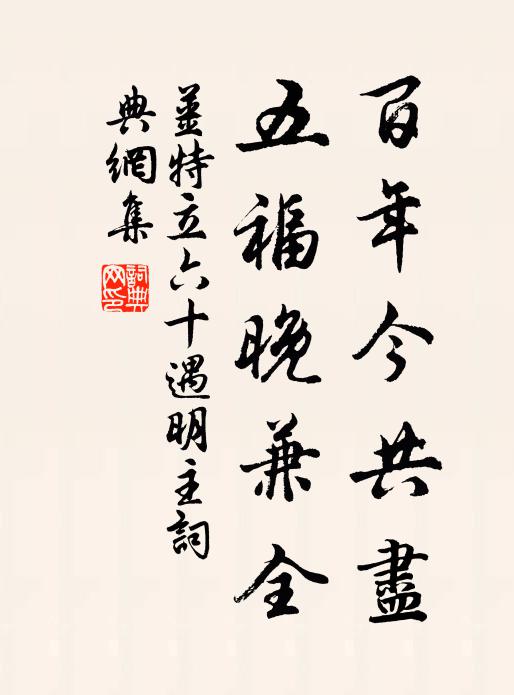 百年今共盡
五福晚兼全
姜特立六十遇明主詞
典網集
詞典
网印